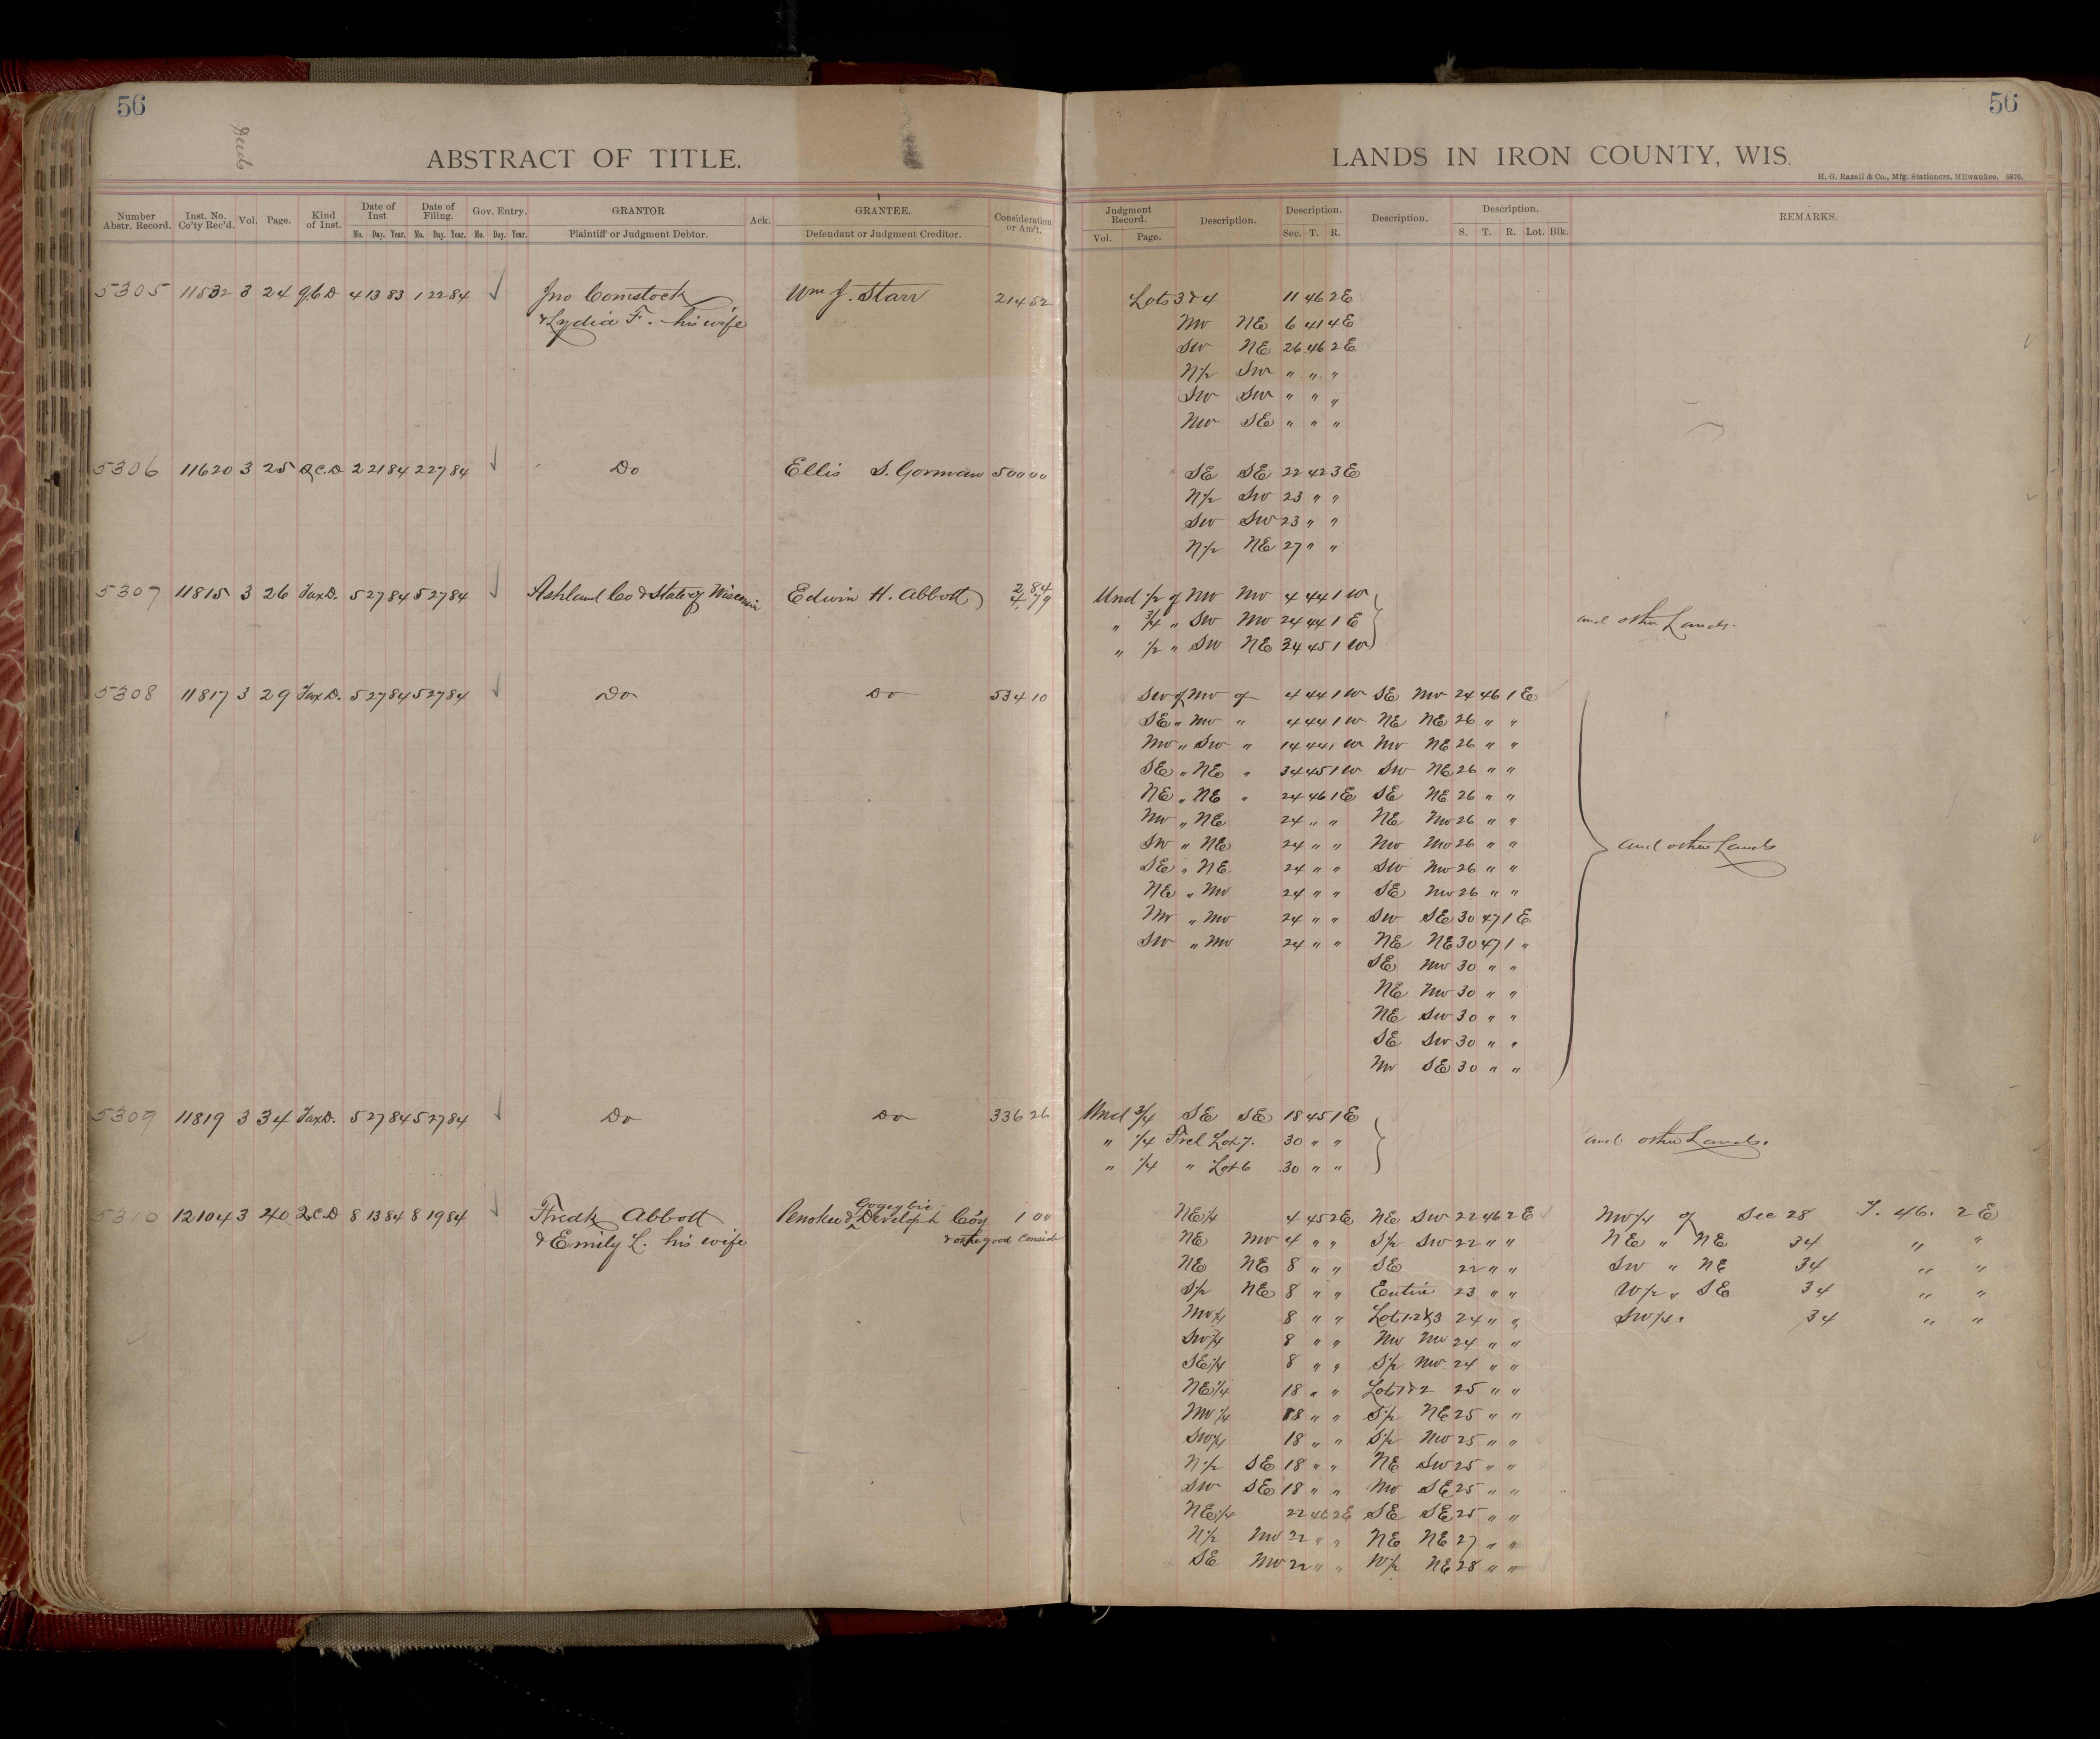 56
56
Deeds
ABSTRACT OF TITLE.
LANDS IN IRON COUNTY, WIS.
H. G. Razall & Co., Mfg. Stationers, Milwaukee. 5876.
Number Abstr. Record. Inst. No. Co'ty Rec'd. Vol. Page. Kind of Inst. Date of Inst Mo. Day. Year. Date of Filing. Mo. Day. Year. Gov. Entry. Mo. Day. Year. GRANTOR Plaintiff or Judgment Debtor. Ack. GRANTEE. Defendant or Judgment Creditor. Consideration or Am't.
Judgment Record. Vol. Page. Description. Description. Sec. T. R. Description. Description. S. T. R. Lot. Blk. REMARKS.
5305 11532 3 24 Q.C.D 4 13 83 1 22 84 Jno Comstock Wm J. Starr 214 52 Lots 3 & 4 11 46 2E
& Lydia F. his wife NW NE 6 41 4E
SW NE 26 46 2E
N½ SW " " "
SW SW " " "
NW SE " " "
5306 11620 3 25 Q.C.D 2 21 84 2 27 84 Do Ellis S. Gorman 500 00 SE SE 22 42 3E
N½ SW 23 " "
SW SW 23 " "
N½ NE 27 " "
5307 11815 3 26 Tax D. 5 27 84 5 27 84 Ashland Co & State of Wisconsin Edwin H. Abbott 2 84 Und ½ of NW NW 4 44 1 W
4.79 " ¾ " SW NW 24 44 1 E and other Lands.
" ½ " SW NE 34 45 1 W
5308 11817 3 29 Tax D. 5 27 84 5 27 84 Do Do 534 10 SW of NW of 4 44 1 W SE NW 24 46 1 E
SE " NW " 4 44 1 W NE NE 26 " "
NW " SW " 14 44 1 W NW NE 26 " "
SE " NE " 34 45 1 W SW NE 26 " "
NE " NE " 24 46 1 E SE NE 26 " "
NW " NE 24 " " NE NW 26 " "
SW " NE 24 " " NW NW 26 " " and other Lands
SE " NE 24 " " SW NW 26 " "
NE " NW 24 " " SE NW 26 " "
NW " NW 24 " " SW SE 30 47 1 E
SW " NW 24 " " NE NE 30 47 1 "
SE NW 30 " "
NE NW 30 " "
NE SW 30 " "
SE SW 30 " "
NW SE 30 " "
5309 11819 3 34 Tax D. 5 27 84 5 27 84 Do Do 336 26 Und ¾ SE SE 18 45 1 E
" ¼ Frcl Lot 7. 30 " " and other Lands.
" ¼ " Lot 6 30 " "
5310 12104 3 40 Q.C.D 8 13 84 8 19 84 Fredk Abbott Penokee & Gogegbic Develop't Co'y 1 00 NE¼ 4 45 2E NE SW 22 46 2 E NW¼ of Sec 28 T. 46. 2 E
& Emily L. his wife & other good Consid NE NW 4 " " S½ SW 22 " " NE " NE 34 " "
NE NE 8 " " SE 22 " " SW " NE 34 " "
S½ NE 8 " " Entire 23 " " W½ " SE 34 " "
NW¼ 8 " " Lots 1.2 & 3 24 " " SW¼. 34 " "
SW¼ 8 " " NW NW 24 " "
SE¼ 8 " " S½ NW 24 " "
NE¼ 18 " " Lots 1 & 2 25 " "
NW¼ 18 " " S½ NE 25 " "
SW¼ 18 " " S½ NW 25 " "
N½ SE 18 " " NE SW 25 " "
SW SE 18 " " NW SE 25 " "
NE¼ 22 46 2E SE SE 25 " "
N½ NW 22 " " NE NE 27 " "
SE NW 22 " " W½ NE 28 " "